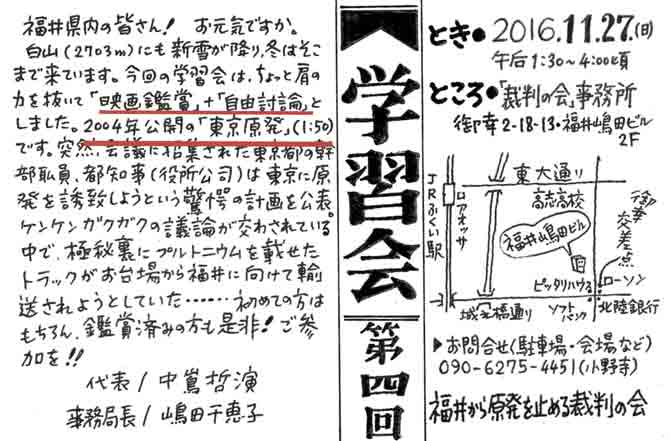 福井県内の皆さん！ お元気ですか。
白山(2703m)にも新雪が降り、冬はそこ
まで来ています。今回の学習会は、ちょっと肩の
力を抜いて「映画鑑賞」+「自由討論」と
しました。2004年公開の「東京原発」(1:50)
です。突然、会議に招集された東京都の幹
部職員、都知事(役所公司)は東京に原
発を誘致しようという驚愕の計画を公表
ケンケンガクガクの議論が交わされている
中で、極秘裏にプルトニウムを載せた
トラックがお台場から福井に向けて輸
送されようとしていた……初めての方は
もちろん、鑑賞済みの方も是非！ご参
加を!!
代表/中嶌哲演
事務局長/嶋田千恵子
学習会
第四回
とき● 2016.11.27(日)
午后1:30～4:00頃
ところ●「裁判の会」事務所
御幸2-18-13・福井嶋田ビル
2F
東大通り
JRふくい駅
ロアネッサ
高志高校
御幸交差点
福井嶋田ビル
ピッタリハウス
ローソン
城の橋通り
ソフトバンク
北陸銀行
▶お問合せ(駐車場・会場など)
090-6275-4451(小野寺)
福井から原発を止める裁判の会